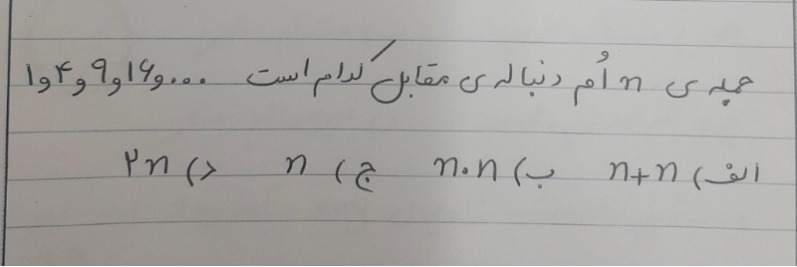 جمله ی n اُم دنباله ی مقابل کدام است ۱و۴و۹و۱۶و...
الف) n+n ب) n.n ج) n د) ۲n